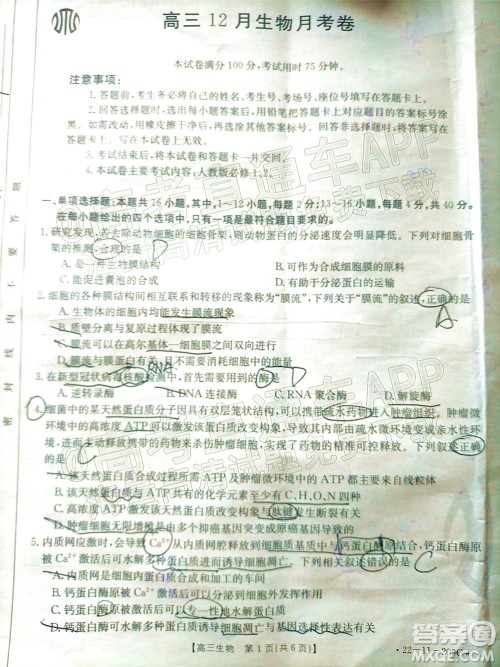 高三12月生物月考卷
本试卷满分100分,考试用时75分钟。
注意事项:
1.答题前,考生务必将自己的姓名、考生号、考场号、座位号填写在答题卡上。
2.回答选择题时,选出每小题答案后,用铅笔把答题卡上对应题目的答案标号涂
黑。如需改动,用橡皮擦干净后,再选涂其他答案标号。回答非选择题时,将答案写在
答题卡上。写在本试卷上无效。
3.考试结束后,将本试卷和答题卡一并交回。
4.本试卷主要考试内容:人教版必修1、2。
一、单项选择题:本题共16小题,其中,1~12小题,每题2分;13~16小题,每题4分,共40分。
在每小题给出的四个选项中,只有一项是符合题目要求的。
1.研究发现,若去除动物细胞的细胞骨架,则动物蛋白的分泌速度会明显降低。下列对细胞骨
架的推测,合理的是 D
A.是一种生物膜结构
B.能合成细胞膜的原料
C.能促进囊泡的合成
D.参与胞内物质的运输
2.细胞的各种膜结构间相互联系和转移的现象称为“膜流”,下列关于“膜流”的叙述,正确的是
A
A.生物体的细胞内均能发生膜流现象
B.质壁分离与复原过程体现了膜流
C.膜流可以在高尔基体—细胞膜之间双向进行
D.膜流与膜蛋白有关,不需要消耗细胞中的能量
3.在新型冠状病毒核酸检测中,首先需要用到的酶是
RNA
D
A.逆转录酶
B.DNA连接酶
C.RNA聚合酶
D.解旋酶
4.细菌中的某天然蛋白质分子因具有双层笼状结构,可以携带疏水药物进入肿瘤组织。肿瘤微
环境中的高浓度ATP可以激发该蛋白质分子发生变构,导致其内部疏水环境变成亲水环
境,进而主动释放携带的药物来杀伤肿瘤细胞,实现了药物的精准可控释放。下列叙述正确
的是
C
A.该天然蛋白质合成过程所需ATP及肿瘤微环境中的ATP都主要来自线粒体
B.该天然蛋白质与ATP共有的化学元素至少含有C、H、O、N四种
C.高浓度ATP激发该天然蛋白质变构与肽键发生断裂无关
D.肿瘤细胞无限增殖是由多个抑癌基因突变成原癌基因导致的
5.内质网应激时,会导致Ca²⁺从内质网腔释放到细胞质基质中与钙蛋白酶原结合,钙蛋白酶原
被Ca²⁺激活后可作用于细胞质基质进而诱导细胞凋亡。下列相关叙述错误的是
C
A.内质网是细胞内蛋白质合成和加工的车间
B.钙蛋白酶原被Ca²⁺激活后可以专一性地发挥作用
C.钙蛋白酶原被Ca²⁺激活后可诱导细胞凋亡
D.钙蛋白酶原的形成是基因选择性表达的结果
【高三生物 第1页(共6页)】
·22-11-209C·
高考直通车APP
密 封 线 内 不 要 答 题
答案圈